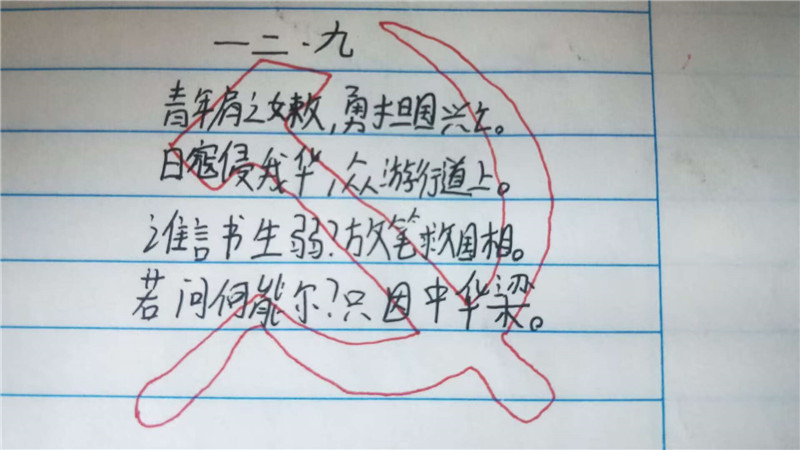 一二·九
青年肩之嫩,勇担国兴亡。
日寇侵我华,众游行道上。
谁言书生弱?放笔救国相。
若问何能尔?只因中华梁。